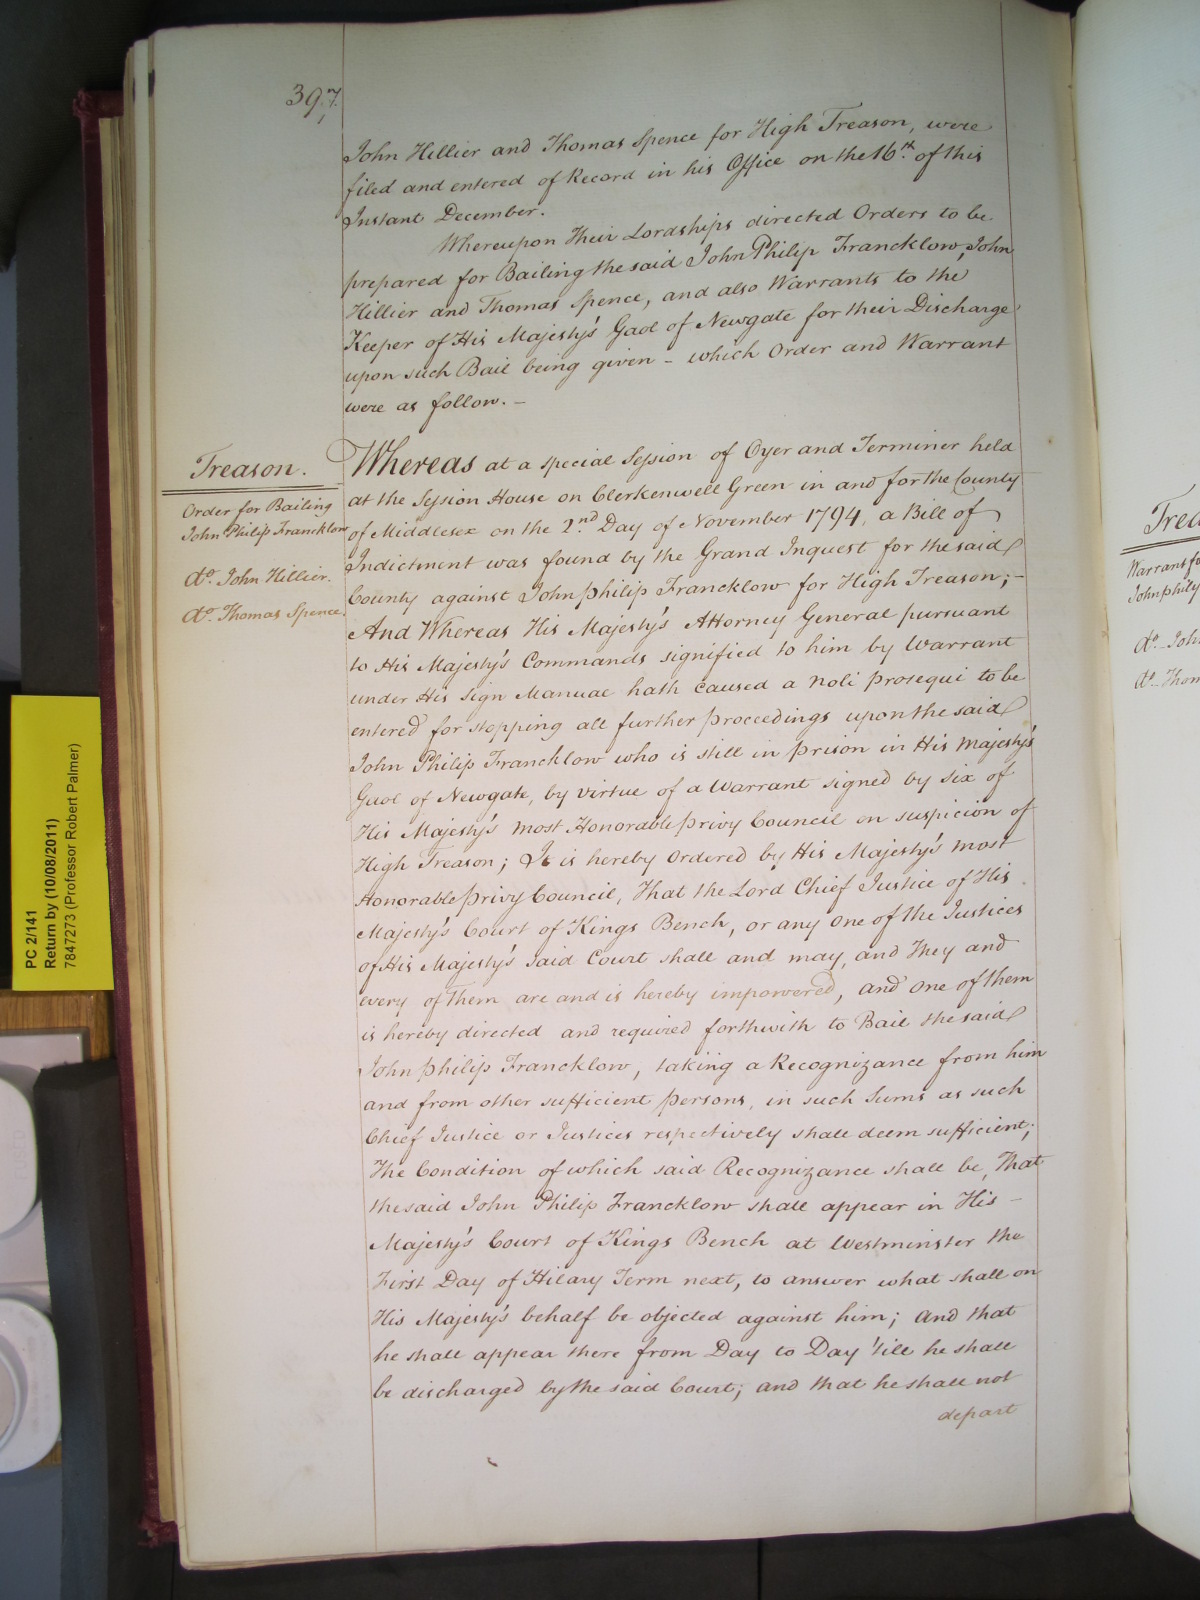 397.
John Hillier and Thomas Spence for High Treason, were
filed and entered of Record in his Office on the 16th. of this
Instant December.
Whereupon Their Lordships directed Orders to be
prepared for Bailing the said John Philip Francklow, John
Hillier and Thomas Spence, and also Warrants to the
Keeper of His Majesty's Gaol of Newgate for their Discharge
upon such Bail being given – which Order and Warrant
were as follow. –
Treason.
Order for Bailing
John Philip Francklow
do. John Hillier.
do. Thomas Spence.
Whereas at a special Session of Oyer and Terminer held
at the Session House on Clerkenwell Green in and for the County
of Middlesex on the 2nd. Day of November 1794, a Bill of
Indictment was found by the Grand Inquest for the said
County against John philip Francklow for High Treason; –
And Whereas His Majesty's Attorney General pursuant
to His Majesty's Commands signified to him by Warrant
under His Sign Manual hath caused a Noli prosequi to be
entered for stopping all further proceedings upon the said
John Philip Francklow who is still in prison in His Majesty's
Gaol of Newgate, by virtue of a Warrant signed by six of
His Majesty's most Honorable privy Council on suspicion of
High Treason; It is hereby Ordered by His Majesty's most
Honorable privy Council, That the Lord Chief Justice of His
Majesty's Court of Kings Bench, or any one of the Justices
of His Majesty's said Court shall and may, and They and
every of Them are and is hereby impowered, and One of them
is hereby directed and required forthwith to Bail the said
John philip Francklow, taking a Recognizance from him
and from other sufficient persons, in such Sums as such
Chief Justice or Justices respectively shall deem sufficient;
The Condition of which said Recognizance shall be, That
the said John Philip Francklow shall appear in His –
Majesty's Court of Kings Bench at Westminster the
First Day of Hilary Term next, to answer what shall on
His Majesty's behalf be objected against him; and that
he shall appear there from Day to Day 'till he shall
be discharged by the said Court; and that he shall not
depart
PC 2/141
Return by (10/08/2011)
7847273 (Professor Robert Palmer)
Warrant fo
John philip
do. John
do. Thom